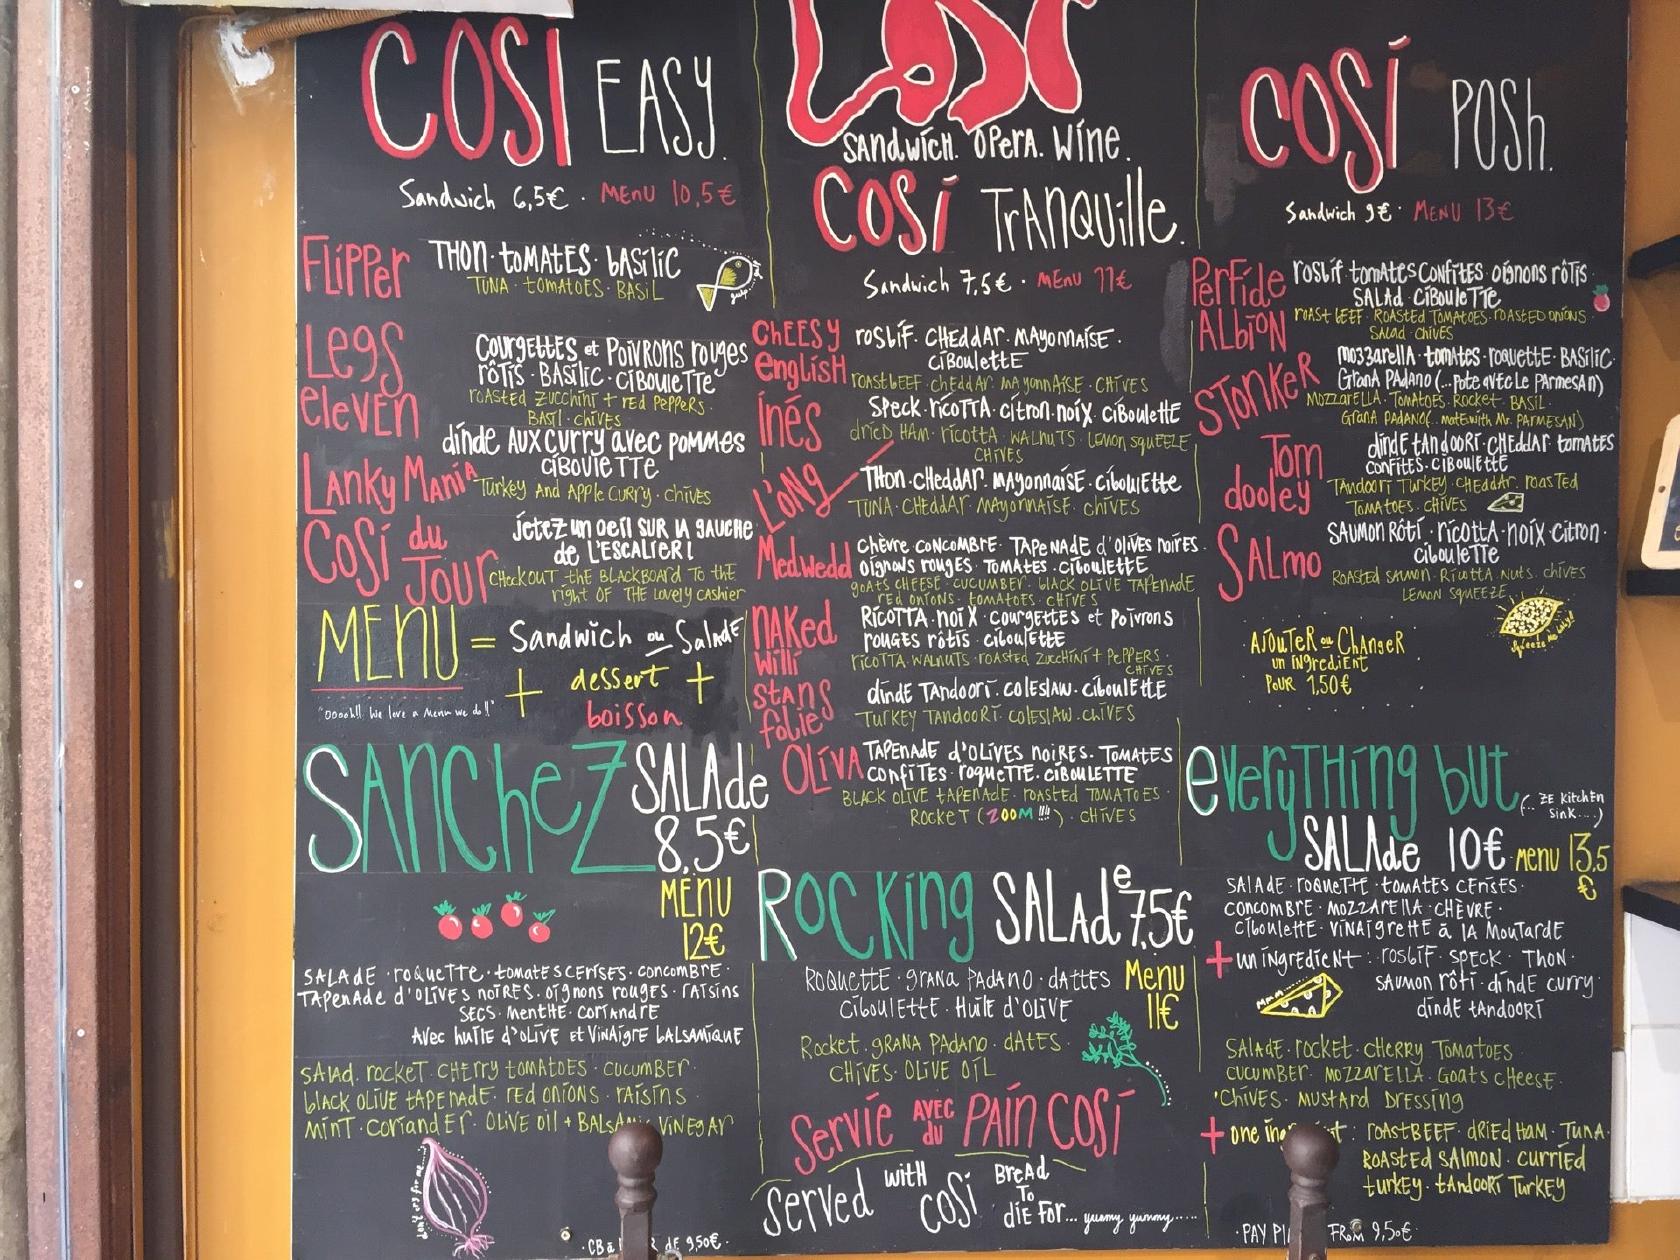 COSI EASY.
Sandwich 6,5€ · MENU 10,5€
FLIPPER
THON · TOMATES · BASILIC
TUNA · TOMATOES · BASIL
LEGS ELEVEN
COURGETTES et POIVRONS ROUGES
RÔTIS · BASILIC · CIBOULETTE
ROASTED ZUCCHINI + RED PEPPERS ·
BASIL · CHIVES
LANKY MANIA
DINDE AUX CURRY AVEC POMMES
CIBOULETTE
TURKEY AND APPLE CURRY · CHIVES
COSI du JOUR
JETEZ UN OEIL SUR LA GAUCHE
de L'ESCALIER!
CHECKOUT THE BLACKBOARD TO THE
RIGHT OF THE LOVELY CASHIER
MENU = Sandwich ou Salade
+ dessert +
boisson
"Ooooh!! We love a Menu we do!!"
SANCHEZ SALADE
8,5€
MENU
12€
SALADE · ROQUETTE · TOMATES CERISES · CONCOMBRE ·
TAPENADE D'OLIVES NOIRES · OIGNONS ROUGES · RAISINS
SECS · MENTHE · CORIANDRE
AVEC HUILE D'OLIVE ET VINAIGRE BALSAMIQUE
SALAD · ROCKET · CHERRY TOMATOES · CUCUMBER ·
BLACK OLIVE TAPENADE · RED ONIONS · RAISINS ·
MINT · CORIANDER · OLIVE OIL + BALSAMIC VINEGAR
DE 9,50€ ·
COSI
SANDWICH. OPERA. WINE.
COSI TRANQUILLE.
Sandwich 7,5€ · MENU 11€
CHEESY ENGLISH
ROSBIF · CHEDDAR · MAYONNAISE ·
CIBOULETTE
ROAST BEEF · CHEDDAR · MAYONNAISE · CHIVES
INÉS
SPECK · RICOTTA · CITRON · NOIX · CIBOULETTE
DRIED HAM · RICOTTA · WALNUTS · LEMON SQUEEZE
CHIVES
L'ONG
THON · CHEDDAR · MAYONNAISE · CIBOULETTE
TUNA · CHEDDAR · MAYONNAISE · CHIVES
MEDWEDD
CHÈVRE CONCOMBRE · TAPENADE D'OLIVES NOIRES ·
OIGNONS ROUGES · TOMATES · CIBOULETTE
GOATS CHEESE · CUCUMBER · BLACK OLIVE TAPENADE
RED ONIONS · TOMATOES · CHIVES
NAKED WILLI
RICOTTA · NOIX · COURGETTES et POIVRONS
ROUGES RÔTIS · CIBOULETTE
RICOTTA · WALNUTS · ROASTED ZUCCHINI + PEPPERS ·
CHIVES
STANS FOLIES
DINDE TANDOORI · COLESLAW · CIBOULETTE
TURKEY TANDOORI · COLESLAW · CHIVES
OLIVA
TAPENADE D'OLIVES NOIRES · TOMATES
CONFITES · ROQUETTE · CIBOULETTE
BLACK OLIVE TAPENADE · ROASTED TOMATOES ·
ROCKET (ZOOM !!!!) · CHIVES
ROCKING SALADE 7,5€
Menu
11€
ROQUETTE · GRANA PADANO · DATTES
CIBOULETTE · HUILE D'OLIVE
ROCKET · GRANA PADANO · DATES ·
CHIVES · OLIVE OIL
Servie AVEC du PAIN COSI
Served WITH COSI BREAD TO DIE FOR... yummy yummy.....
COSI POSH.
Sandwich 9€ · MENU 13€
PERFIDE ALBION
ROSBIF · TOMATES CONFITES · OIGNONS RÔTIS
SALAD · CIBOULETTE
ROAST BEEF · ROASTED TOMATOES · ROASTED ONIONS ·
SALAD · CHIVES
STONKER
MOZZARELLA · TOMATES · ROQUETTE · BASILIC ·
GRANA PADANO (...POTE AVEC LE PARMESAN)
MOZZARELLA · TOMATOES · ROCKET · BASIL ·
GRANA PADANO (... MATE WITH MR. PARMESAN)
TOM DOOLEY
DINDE TANDOORI · CHEDDAR TOMATES
CONFITES · CIBOULETTE
TANDOORI TURKEY · CHEDDAR · ROASTED
TOMATOES · CHIVES
SALMO
SAUMON RÔTI · RICOTTA · NOIX · CITRON ·
CIBOULETTE
ROASTED SALMON · RICOTTA · NUTS · CHIVES
LEMON SQUEEZE
Squeeze me baby!
AJOUTER ou CHANGER
UN INGREDIENT
POUR 1,50€
EVERYTHING BUT (... ZE KITCHEN SINK....)
SALADE 10€ MENU 13,5€
SALADE · ROQUETTE · TOMATES CERISES ·
CONCOMBRE · MOZZARELLA · CHÈVRE ·
CIBOULETTE · VINAIGRETTE à LA MOUTARDE
+ UN INGREDIENT : ROSBIF · SPECK · THON ·
SAUMON RÔTI · DINDE CURRY ·
DINDE TANDOORI
SALADE · ROCKET · CHERRY TOMATOES
CUCUMBER · MOZZARELLA · GOATS CHEESE ·
CHIVES · MUSTARD DRESSING
+ ONE : ROASTBEEF · DRIED HAM · TUNA ·
ROASTED SALMON · CURRIED
TURKEY · TANDOORI TURKEY
· PAY FROM 9,50€ ·